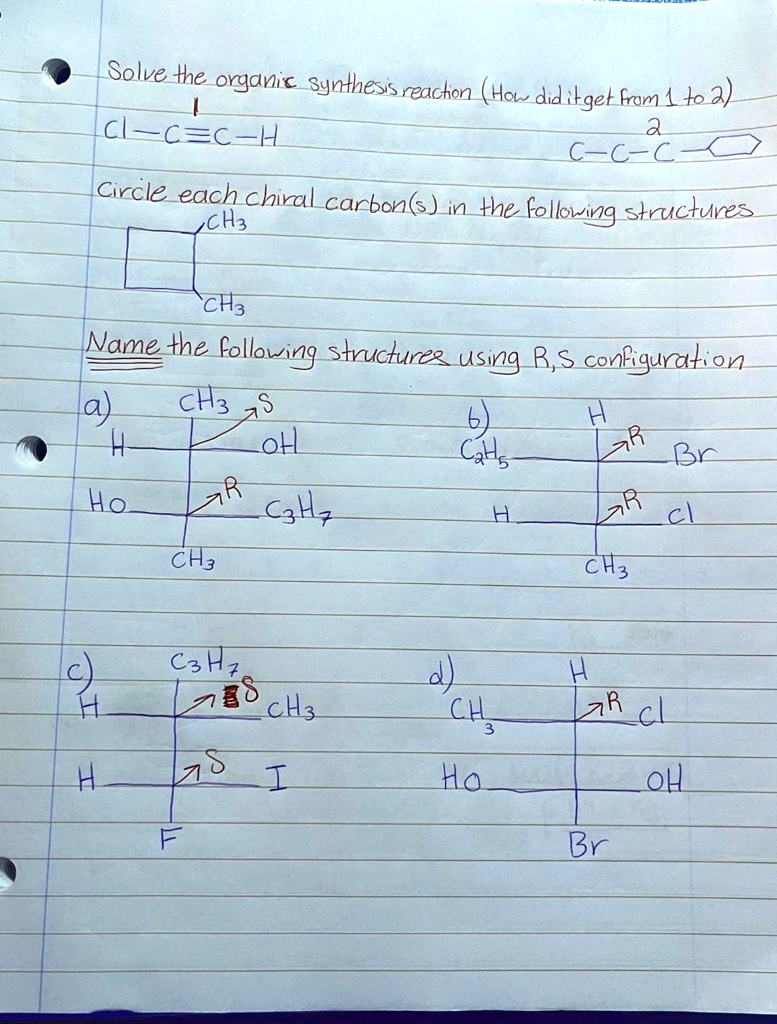 Solve the organic synthesis reaction (How did it get from 1 to 2)
1 2
Cl-C≡C-H C-C-C-
Circle each chiral carbon(s) in the following structures
CH3
CH3
Name the following structures using R,S configuration
a) CH3 S b) H
H OH C2H5 R Br
HO R C3H7 H R Cl
CH3 CH3
c) C3H7 d) H
H S CH3 CH3 R Cl
H S I HO OH
F Br